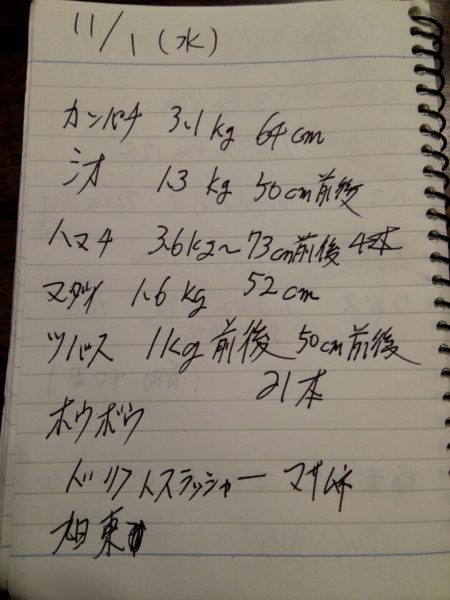 11/1(水)
カンパチ 3.1kg 64cm
シオ 1.3kg 50cm前後
ハマチ 3.6kg~73cm前後 4本
マダイ 1.6kg 52cm
ツバス 1kg前後 50cm前後
21本
ホウボウ
ドリフトスラッシャー
加東